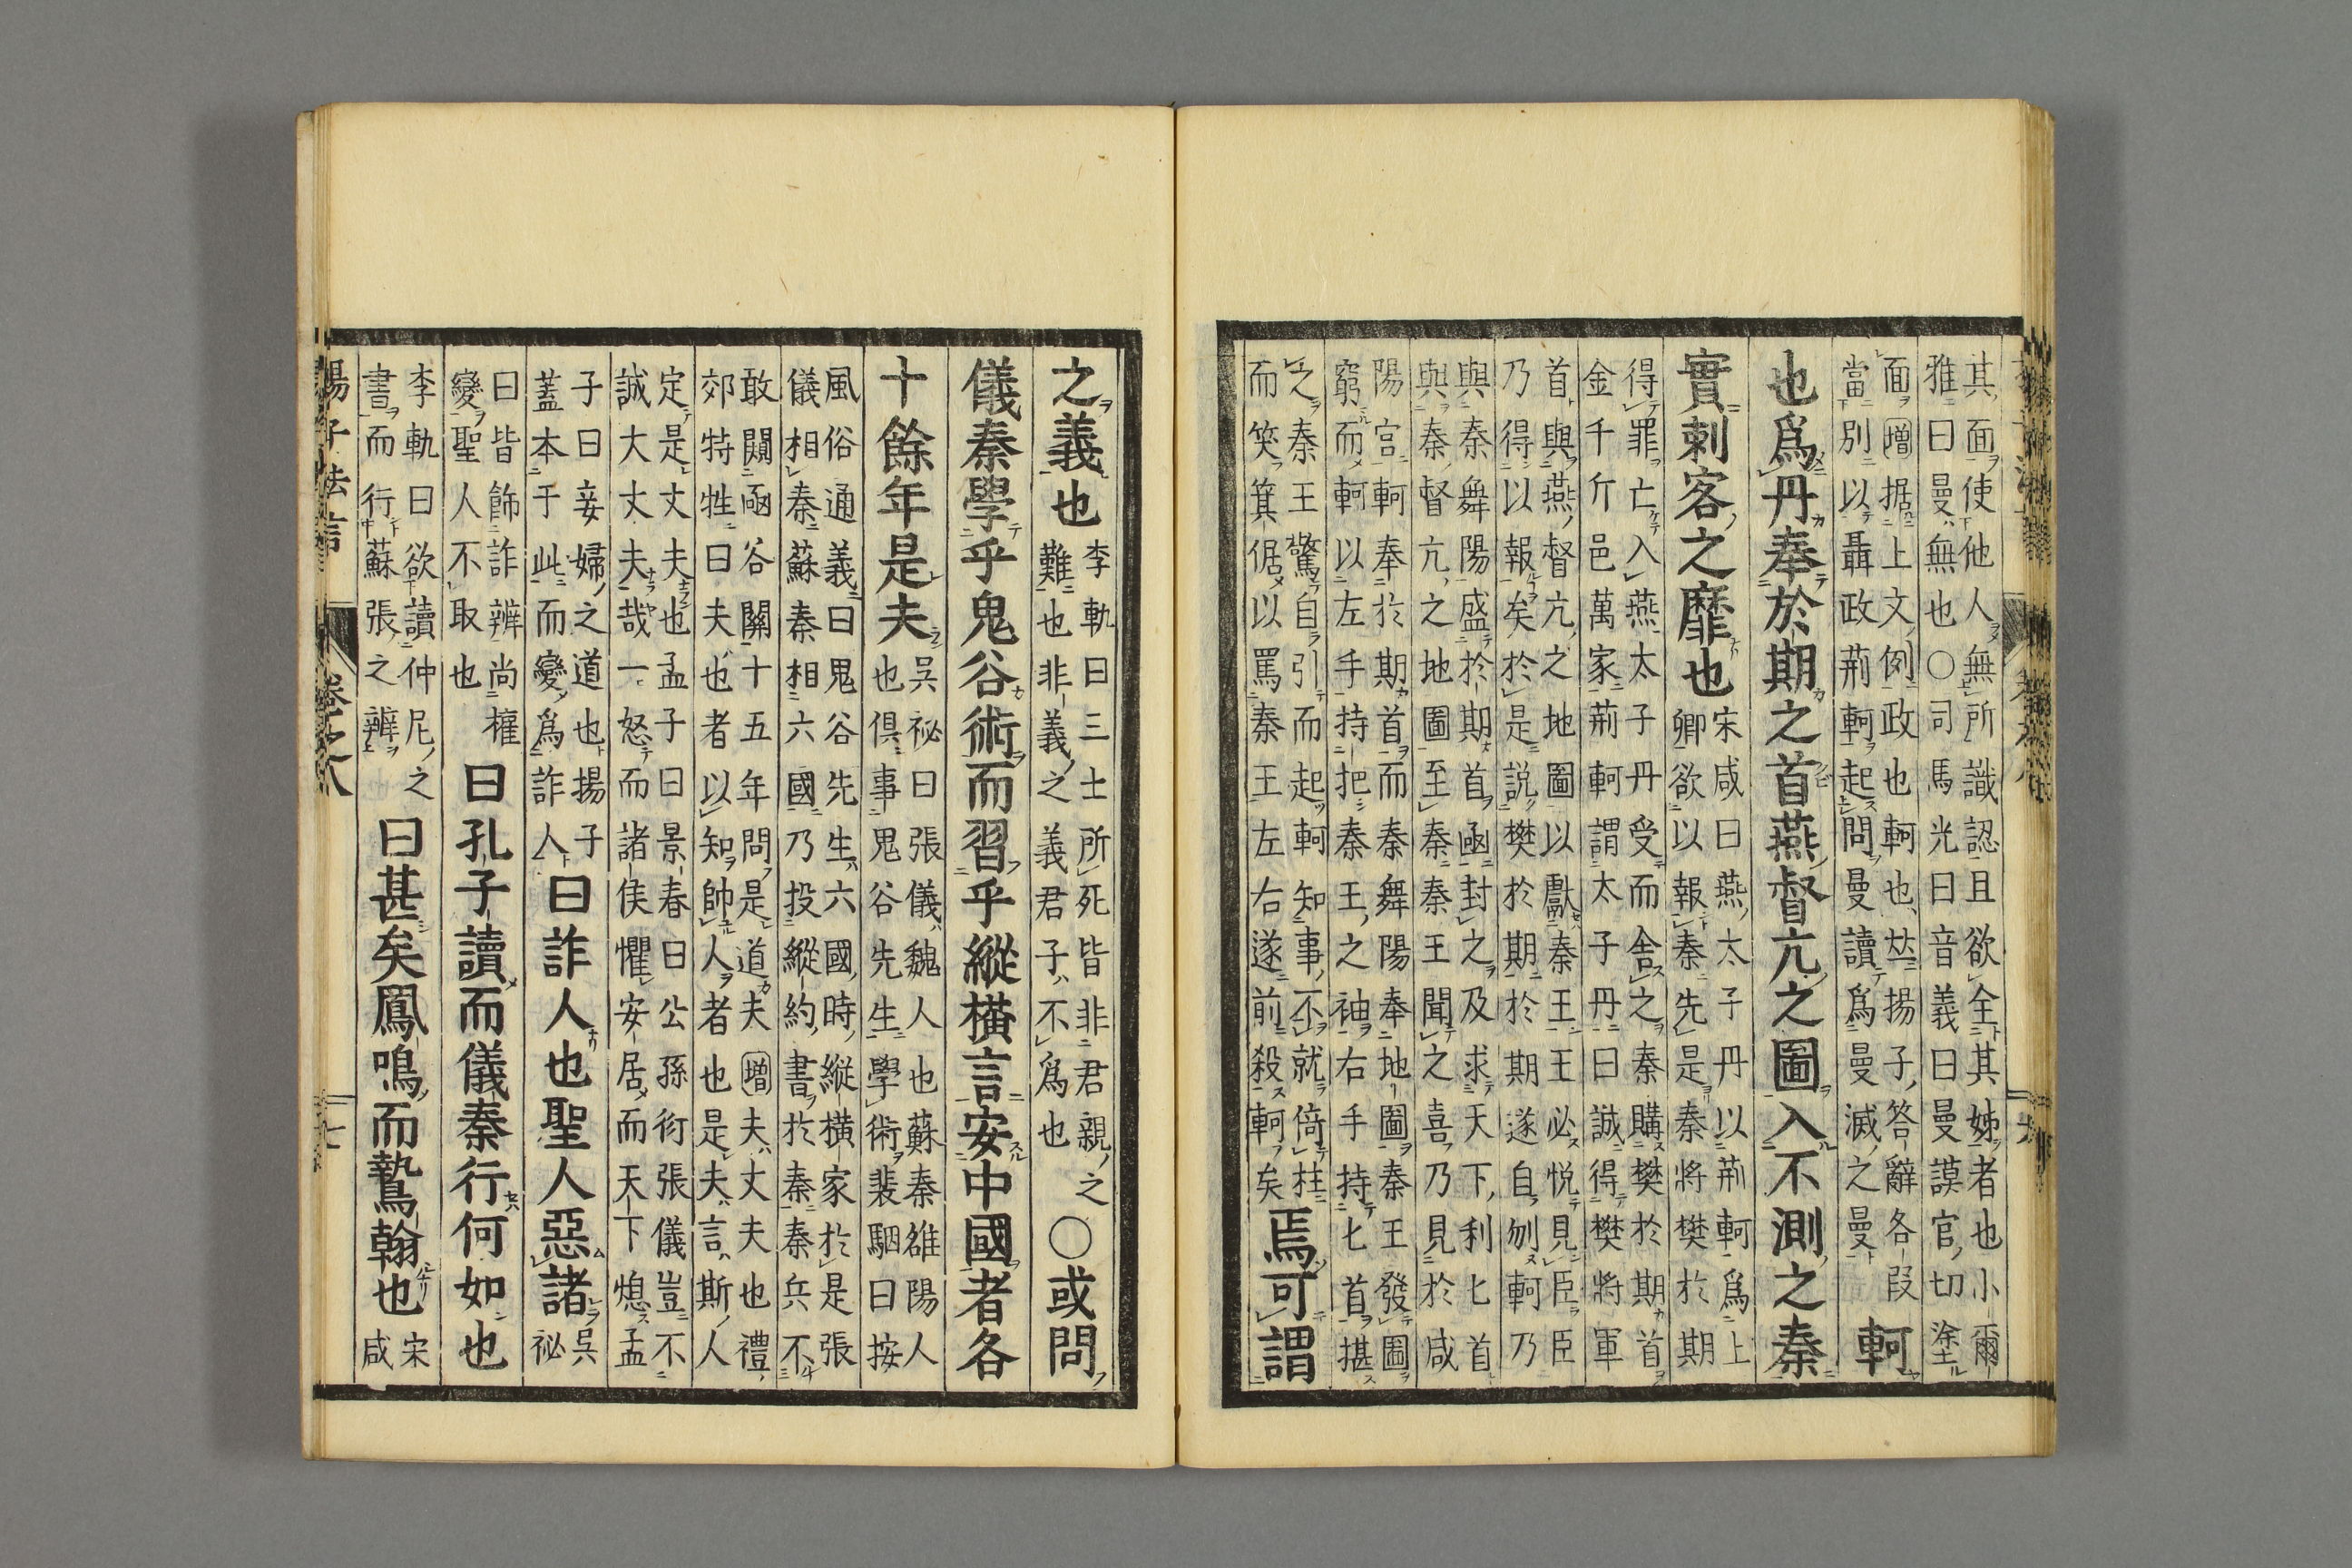 其面使他人無所識認且欲全其姊者也小爾
雅曰曼無也〇司馬光曰音義曰曼謨官切塗
面增据上文例政也軻也㠪揚子答辭各叚
當別以聶政荊軻起問曼讀爲曼滅之曼
軻
也爲丹奉於期之首燕督亢之圖入不測之秦
實刺客之靡也
宋咸曰燕太子丹以荊軻爲上
卿欲以報秦先是秦將樊於期
得罪亡入燕太子丹受而舍之秦購樊於期首
金千斤邑萬家荊軻謂太子丹曰誠得樊將軍
首與燕督亢之地圖以獻秦王王必悅見臣臣
乃得以報矣於是說樊於期於期遂自刎軻乃
與秦舞陽盛於期首函封之及求天下利匕首
與秦督亢之地圖至秦秦王聞之喜乃見於咸
陽宮軻奉於期首而秦舞陽奉地圖秦王發圖
窮而軻以左手持把秦王之袖右手持匕首揕
之秦王驚自引而起軻知事不就倚柱
而笑箕倨以罵秦王左右遂前殺軻矣
焉可謂
之義也
李軌曰三士所死皆非君親之
難也非義之義君子不爲也
〇或問
儀秦學乎鬼谷術而習乎縱橫言安中國者各
十餘年是夫
吳祕曰張儀魏人也蘇秦雒陽人
也俱事鬼谷先生學術裴駰曰按
風俗通義曰鬼谷先生六國時縱橫家於是張
儀相秦蘇秦相六國乃投縱約書於秦秦兵不
敢闚函谷關十五年問是道夫增夫丈夫也禮
郊特牲曰夫也者以知帥人者也是夫言斯人
定是丈夫也孟子曰景春曰公孫衍張儀豈不
誠大丈夫哉一怒而諸侯懼安居而天下熄孟
子曰妾婦之道也揚子
蓋本于此而變爲詐人
曰詐人也聖人惡諸
吳
祕
曰皆飾詐辨尚權
變聖人不取也
曰孔子讀而儀秦行何如也
李軌曰欲讀仲尼之
書而行蘇張之辨也
曰甚矣鳳鳴而鷙翰也
宋
咸
揚子法言 卷之八 七